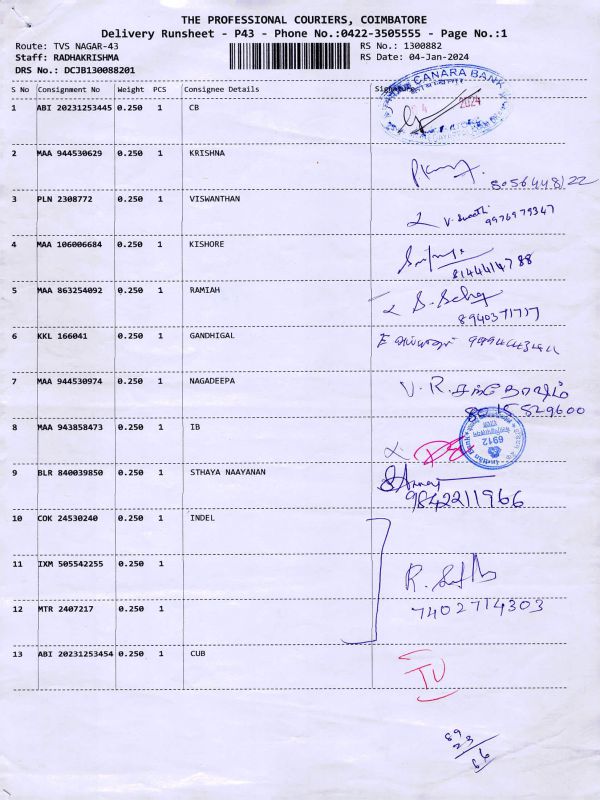 THE PROFESSIONAL COURIERS, COIMBATORE
Delivery Runsheet - P43 - Phone No.:0422-3505555 - Page No.:1
Route: TVS NAGAR-43 RS No.: 1300882
Staff: RADHAKRISHMA RS Date: 04-Jan-2024
DRS No.: DCJB130088201
S No Consignment No Weight PCS Consignee Details Signature
CANARA BANK
1 ABI 20231253445 0.250 1 CB
2024
2 MAA 944530629 0.250 1 KRISHNA
8056448122
3 PLN 2308772 0.250 1 VISWANTHAN
9976979347
4 MAA 106006684 0.250 1 KISHORE
8144414788
5 MAA 863254092 0.250 1 RAMIAH
6 KKL 166041 0.250 1 GANDHIGAL
7 MAA 944530974 0.250 1 NAGADEEPA
V. R.
8015529600
8 MAA 943858473 0.250 1 IB
Indian Bank
6912
9 BLR 840039850 0.250 1 STHAYA NAAYANAN
9842211966
10 COK 24530240 0.250 1 INDEL
11 IXM 505542255 0.250 1
12 MTR 2407217 0.250 1
7402714303
13 ABI 20231253454 0.250 1 CUB
89
23
66